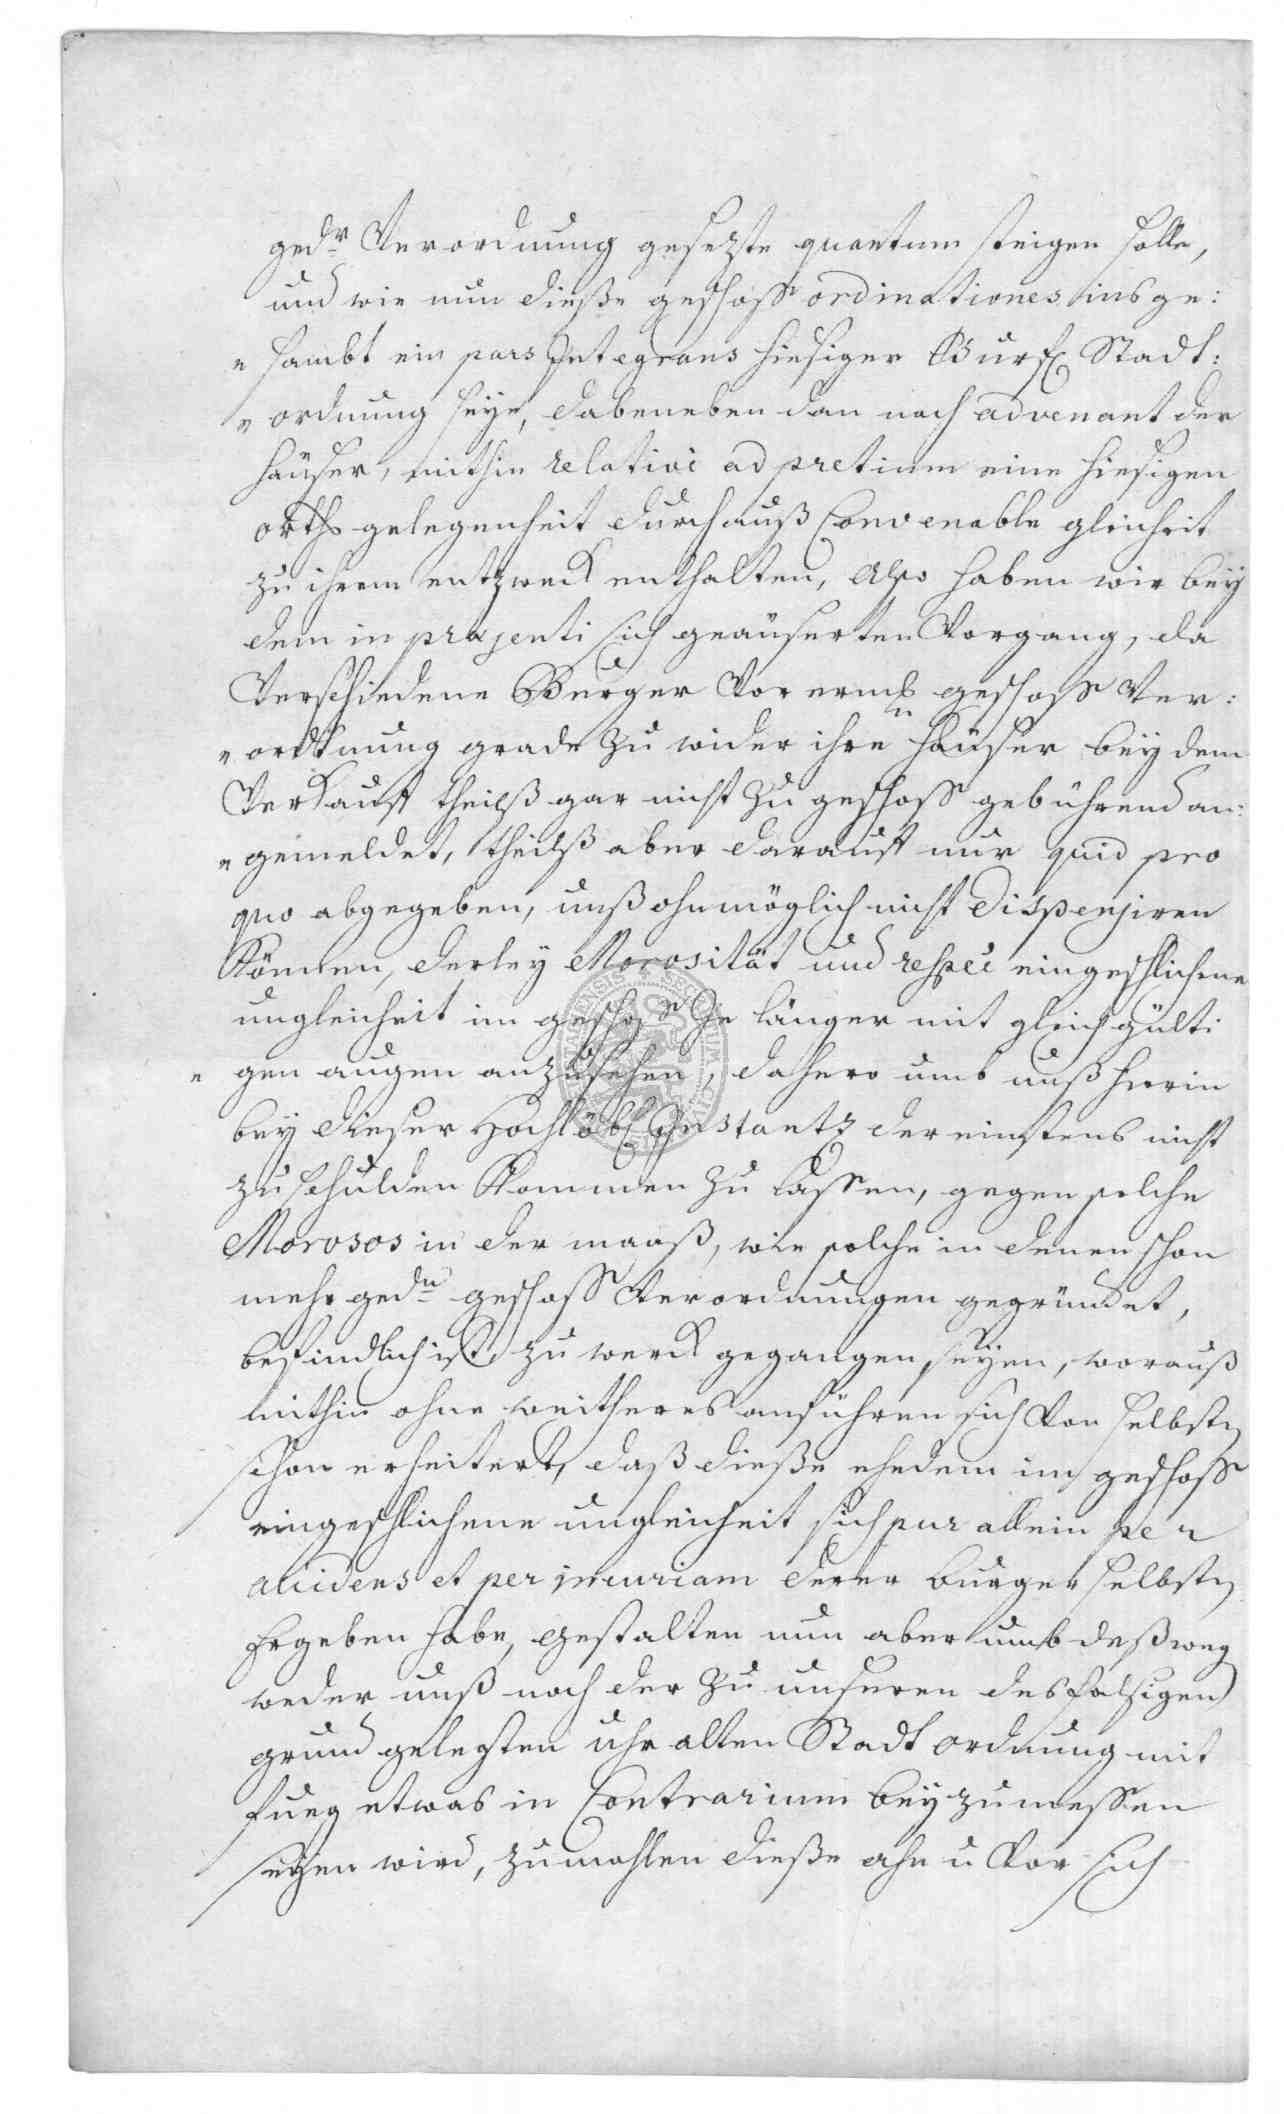 gedr Verordnung gesezte quantum steigen solle,
und wie nun dieße geschoss ordinationes insge:
" sambt ein pars Integrans hiesiger Bursch Stadt:
" ordnung seye, dabeneben dan nach advenant der
häuser, mithin relativè ad pretium eine hiesigen
orths gelegenheit durchauß Convenable gleicheit
zu ihrem entzweck enthalten, Also haben wir bey
dem in præsenti sich geäuserten Vorgang, da
Verschiedene Burger Vorermb geschoss Ver:
" ordtnung grade zu wider ihre häusern bey dem
Verkauff theilß gar nicht zu geschoss gebührend an:
" gemeldet, theilß aber darauff nur quid pro
quo abgegeben, unß ohnmöglich nicht dispensiren
können, derley Morosität und respec eingeschlichene
ungleicheit im geschoss Je länger mit gleichgülti
" gen augen anzusehen, dahero umb unß hierin
bey dieser Hochlöbl Instantz dereinstens nicht
zu schulden kommen zu lassen, gegen solche
Morosos in der maaß, wie solche in denen schon
mehr gedn geschoss Verordnungen gegründet,
befindlich ist, zu werck gegangen seyen, worauß
mithin ohne weitheres anführen sich Von selbsten
schon erheitert, daß dieße ehedem im geschoss
eingeschlichene ungleicheit sich pur allein per
accidens et per incuriam derer burger selbsten
Ergeben habe, gestalten nun aber umb deßweg
weder unß noch der zu unseren desfalsigen
grund gelegten uhr alten Stadt ordnung mit
fueg etwas in Contrarium beyzumessen
seyen wird, zumahlen dieße ahn u Vor sich